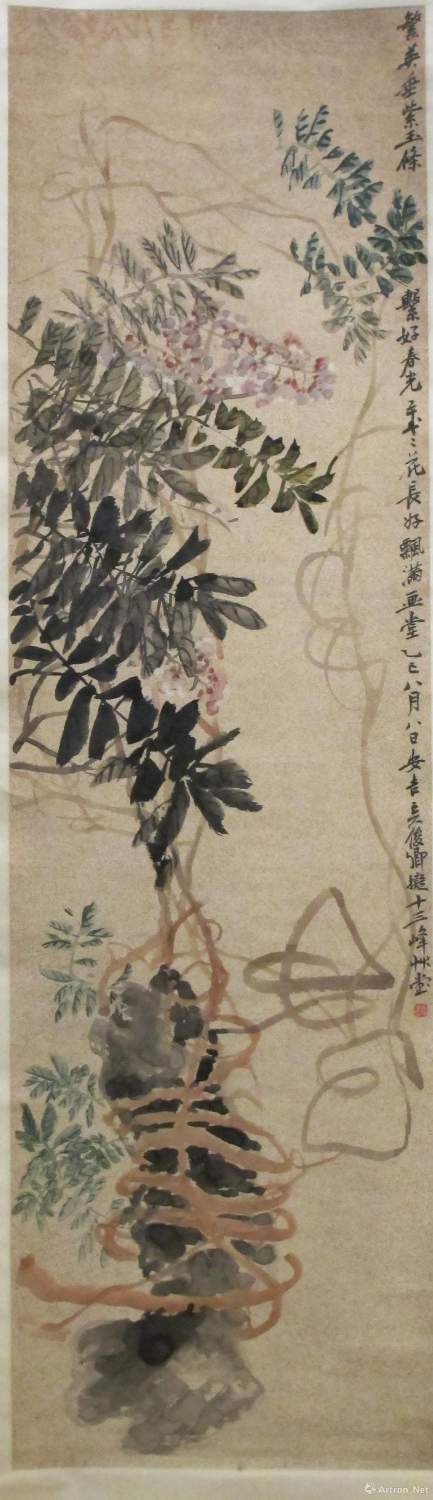 繁英垂紫玉條
繫好春光年年花長好飄滿画堂乙巳八月八日安吉吳俊卿擬十三峰艸堂
Artron.Net